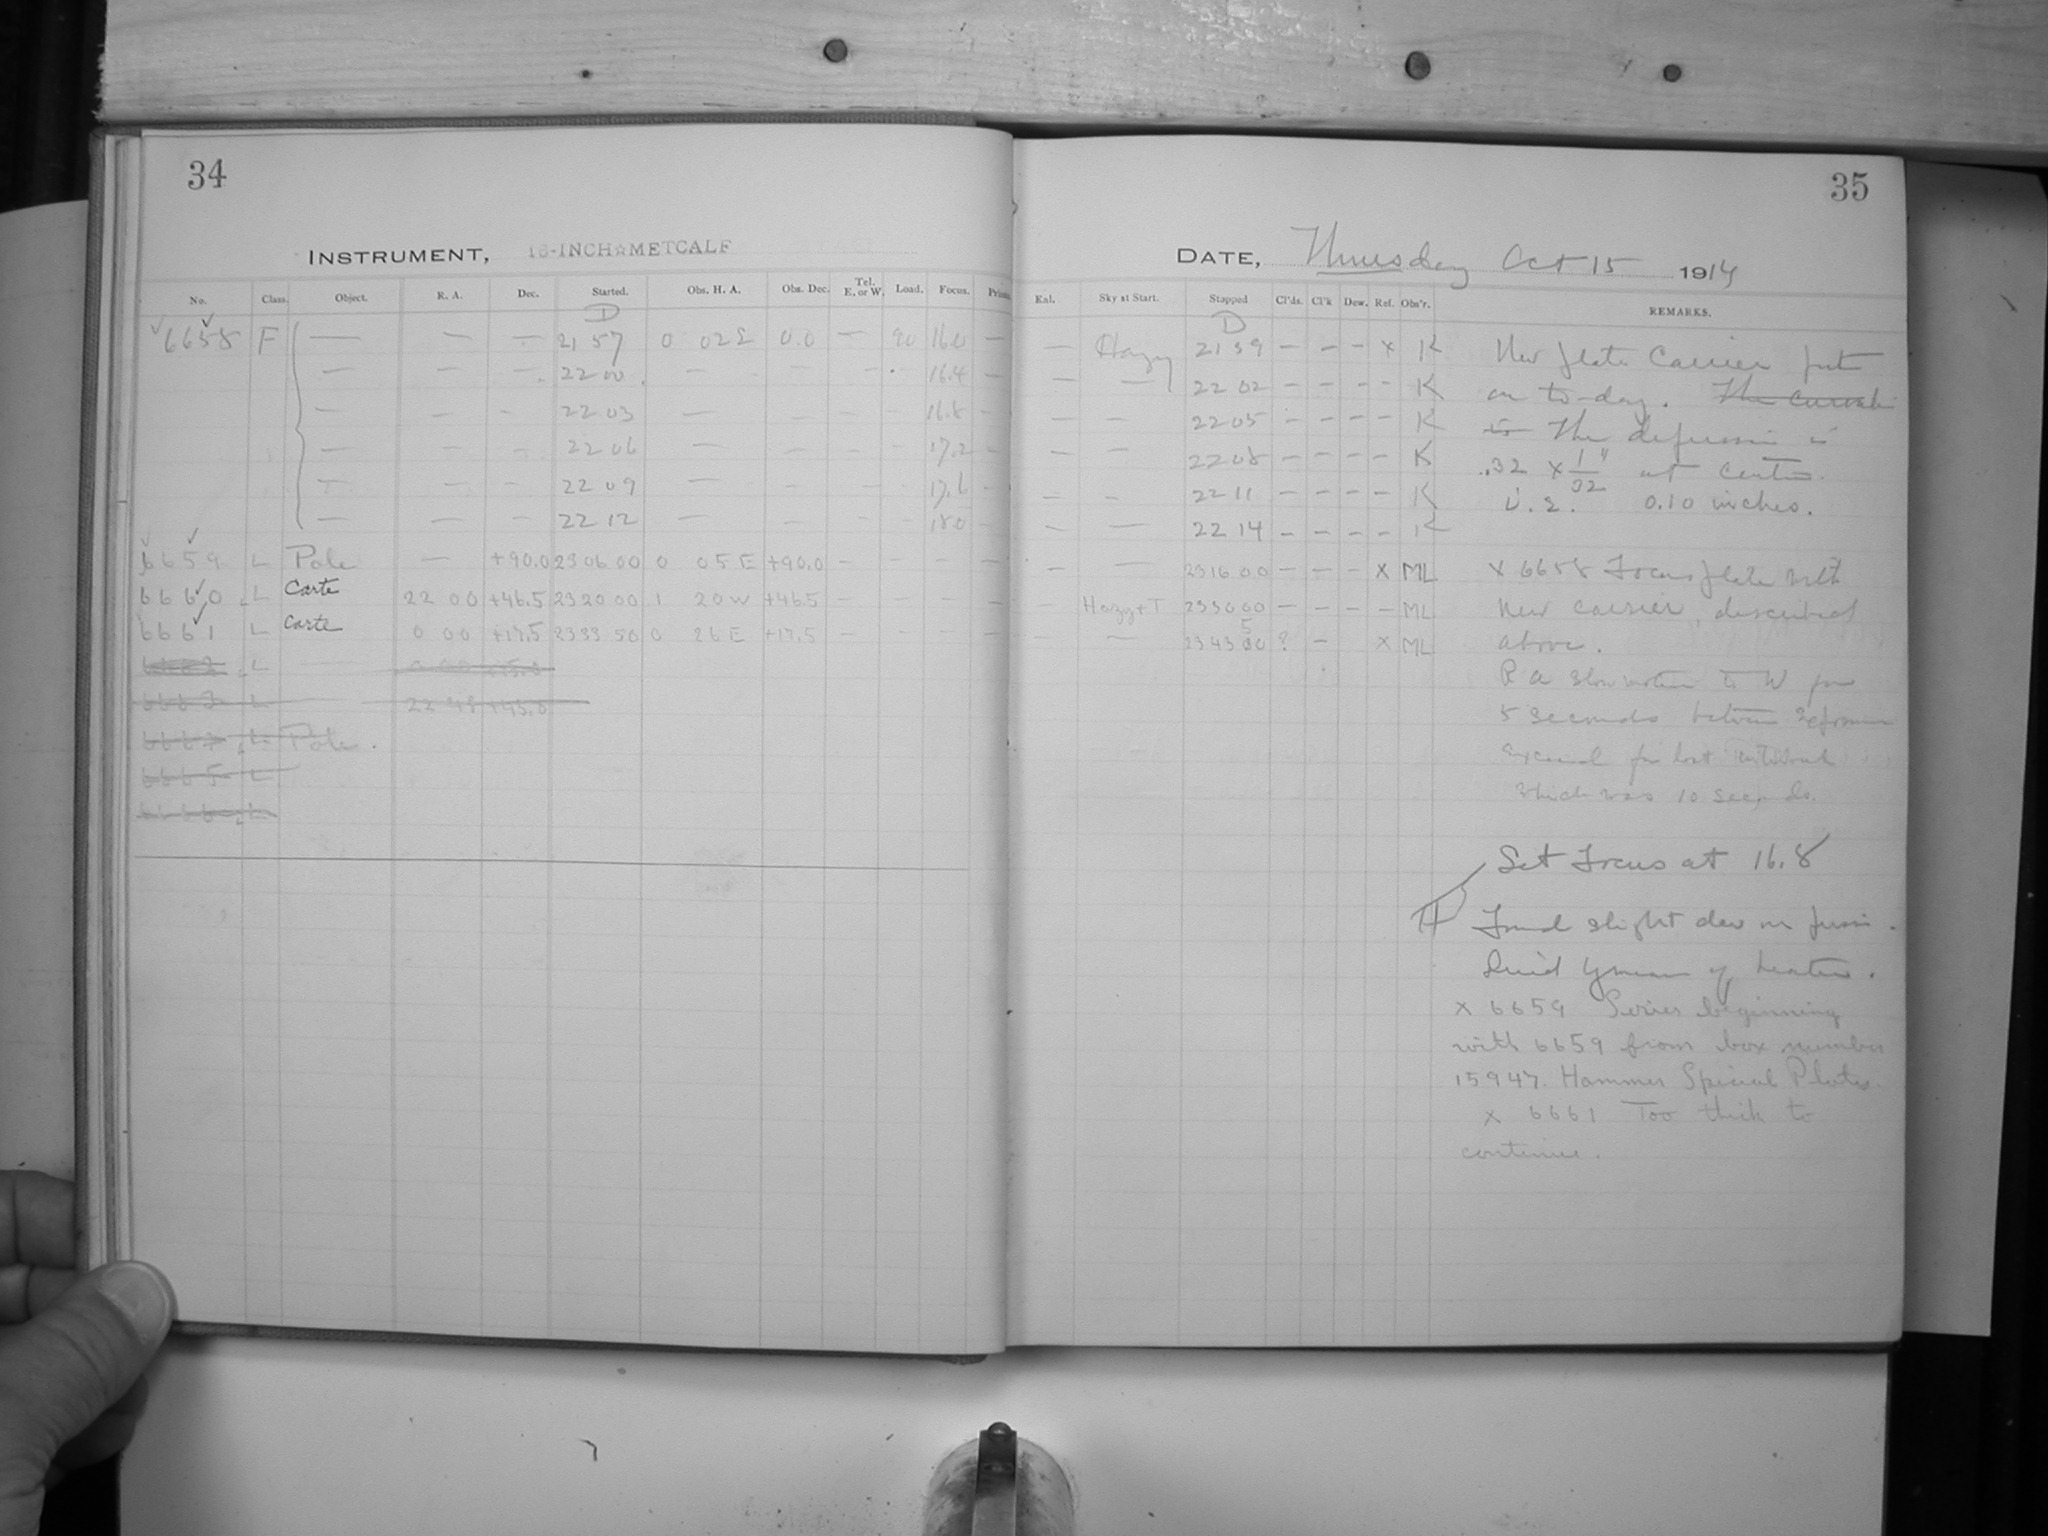 34
INSTRUMENT, 16-INCH☆METCALF
No. Class. Object. R. A. Dec. Started. Obs. H. A. Obs. Dec. Tel. E. or W. Load. Focus.
D
6658 F — — — 21 57 0 02 E 0.0 — 90 16.0 —
— — — 22 00 — — — 16.4 —
— — — 22 03 — — — 16.8 —
— — — 22 06 — — — 17.2 —
— — — 22 09 — — — 17.6 —
— — — 22 12 — — — 18.0 —
6659 L Pole — +90.0 23 06 00 0 05 E +90.0 — — — —
6660 L Carte 22 00 +46.5 23 20 00 1 20 W +46.5 — — — —
6661 L Carte 0 00 +17.5 23 33 50 0 26 E +17.5 — — — —
L
L
L Pole.
6665 L
L
35
DATE, Thursday Oct 15 1914
Eal. Sky at Start. Stopped Cl'ds. Cl'k Dew. Ref. Obs'r. REMARKS.
D
— Hazy 21 59 — — — x K
— — 22 02 — — — — K
— — 22 05 — — — — K
— — 22 08 — — — — K
— — 22 11 — — — — K
— — 22 14 — — — — K
— — 23 16 00 — — — x ML
— Hazy+T 23 30 00 — — — — ML
— 23 43 5 ? — x ML
New plate carrier put
on to-day. The
is The depression is
.32 x 1/32" at centre.
i.e. 0.10 inches.
x 6658 Focus plate with
new carrier, described
above.
R A slow motion to W for
5 seconds between
for last
which was 10 seconds.
Set Focus at 16.8
Found slight dew on
of heater.
x 6659 Series beginning
with 6659 from box number
15947. Hammer Special Plates.
x 6661 Too thick to
continue.